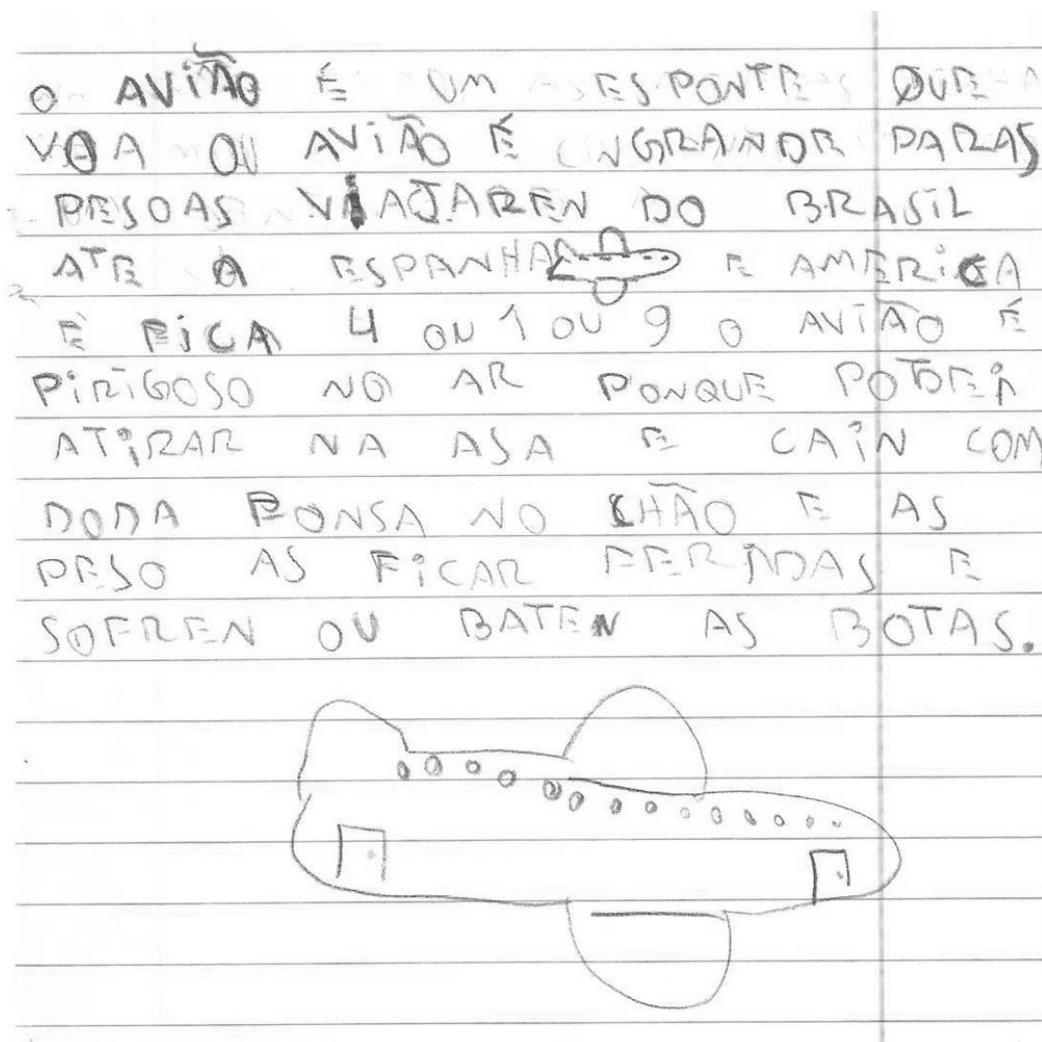 O AVIÃO É UM ESPONTE QUE
VOA OU AVIÃO É INGRANDR PARAS
PESOAS VIAJAREN DO BRASIL
ATE A ESPANHA E AMERICA
E FICA 4 OU 1 OU 9 O AVIÃO É
PIRIGOSO NO AR PONQUE
ATIRAR NA ASA E CAIN COM
DODA FONSA NO CHÃO E AS
PESO AS FICAR FERIDAS E
SOFREN OU BATEN AS BOTAS.